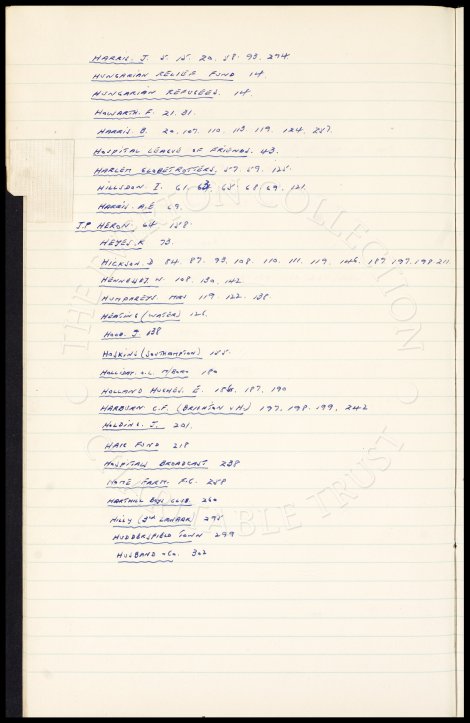 HARRIS. J. 5. 15. 20. 58. 93. 274
HUNGARIAN RELIEF FUND 14.
HUNGARIAN REFUGEES. 14.
HOWARTH. F. 21. 31.
HARRIS B. 20. 107. 110. 113. 119. 124. 257.
HOSPITAL LEAGUE OF FRIENDS. 43.
HARLEM GLOBETROTTERS. 57. 59. 125.
HILLSDON I. 61. 65. 68. 69. 121.
HARRIS. A.E 69.
J.P HERON. 64. 158.
HEYES. K 73.
HICKSON. D 84. 87. 93. 108. 110. 111. 119. 146. 187. 197. 198. 211
HENNESSEY. W. 108. 130. 142
HUMPHREYS MRS 119. 122. 138
HEATING (WATER) 126.
HOLD. J 138
HOSKINS (SOUTHAMPTON) 155.
HOLLIDAY. 180
HOLLAND HUGHES. E. 186. 187. 190
HARBURN C.F. (BRIGHTON) 197. 198. 199. 242
HOLDING. J. 201.
HAIG FUND 218
HOSPITALS BROADCAST 238
HOME FARM F.C. 258
HARTHILL BOYS CLUB. 260
HILLY 295
HUDDERSFIELD TOWN 299
HUSBAND & Co. 302
THE COLLECTION
CHARITABLE TRUST